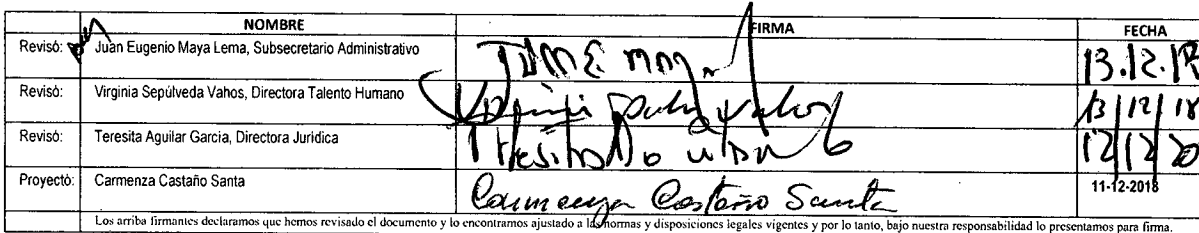 NOMBRE FIRMA FECHA
Revisó: Juan Eugenio Maya Lema, Subsecretario Administrativo 13.12.18
Revisó: Virginia Sepúlveda Vahos, Directora Talento Humano 13/12/18
Revisó: Teresita Aguilar García, Directora Jurídica 12/12/20
Proyectó: Carmenza Castaño Santa Carmenza Castaño Santa 11-12-2018
Los arriba firmantes declaramos que hemos revisado el documento y lo encontramos ajustado a las normas y disposiciones legales vigentes y por lo tanto, bajo nuestra responsabilidad lo presentamos para firma.